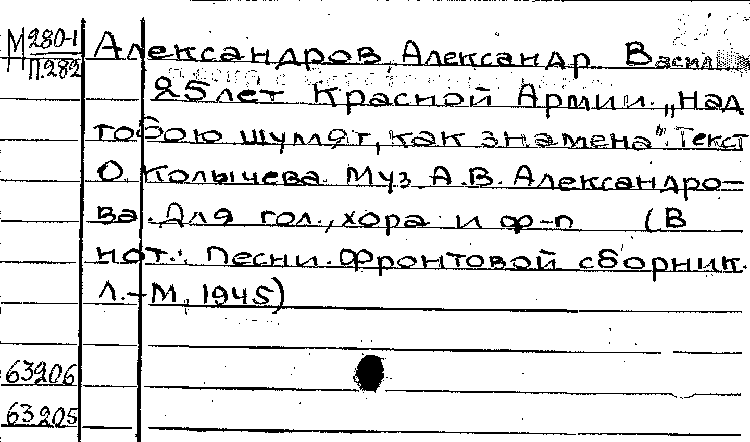 М280-1
П282
Александров, Александр Васил
25 лет Красной Армии. „Над
тобою шумят, как знамена". Текст
О. Колычева. Муз. А.В. Александро-
ва. Для гол., хора и ф-п (В
нот.: Песни. Фронтовой сборник.
Л.-М, 1945)
63206
63205